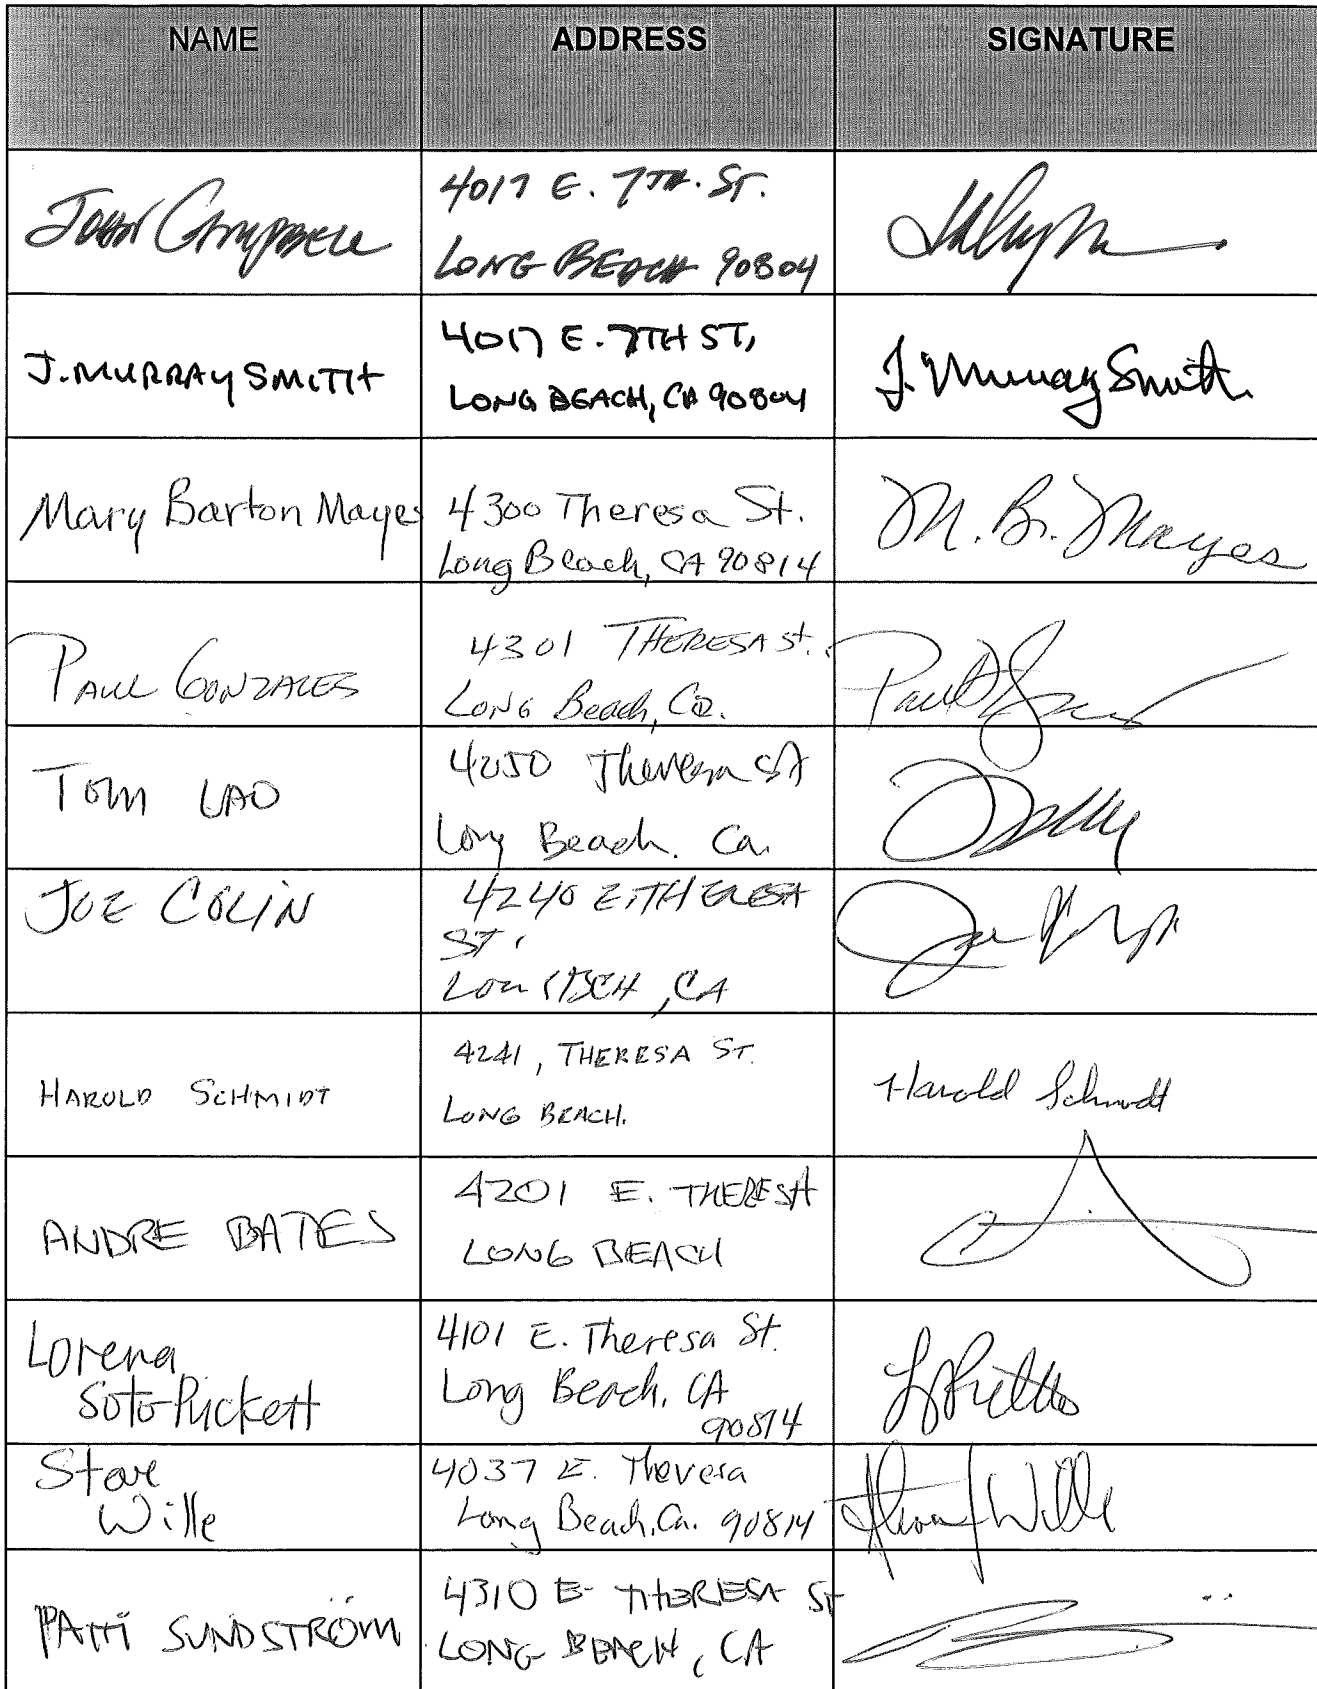 NAME ADDRESS SIGNATURE
JOHN CAMPBELL
4017 E. 7TH. ST.
LONG BEACH 90804
J. MURRAY SMITH
4017 E. 7TH ST,
LONG BEACH, CA 90804
J. Murray Smith
Mary Barton Mayes
4300 Theresa St.
Long Beach, CA 90814
M. B. Mayes
PAUL GONZALES
4301 THERESA St.
LONG Beach, Ca.
Paul
TOM LAO
4250 Theresa St
Long Beach. Ca.
JOE COLIN
4240 E. THERESA
ST.
LON BCH, CA
Joe
HAROLD SCHMIDT
4241, THERESA ST.
LONG BEACH.
Harold Schmidt
ANDRE BATES
4201 E. THERESA
LONG BEACH
Lorena
Soto-Puckett
4101 E. Theresa St.
Long Beach, CA
90814
Steve
Wille
4037 E. Theresa
Long Beach, Ca. 90814
Wille
PATTI SUNDSTRÖM
4310 E THERESA ST
LONG BEACH, CA